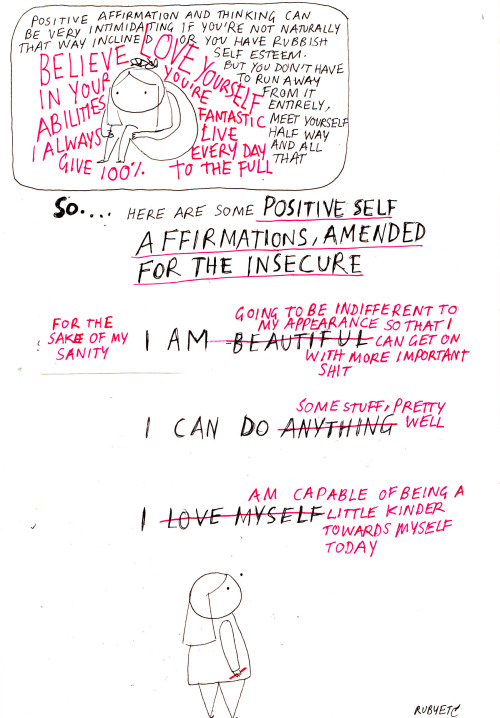 POSITIVE AFFIRMATION AND THINKING CAN
BE VERY INTIMIDATING IF YOU'RE NOT NATURALLY
THAT WAY INCLINED OR YOU HAVE RUBBISH
SELF ESTEEM.
BUT YOU DON'T HAVE
TO RUN AWAY
FROM IT
ENTIRELY,
MEET YOURSELF
HALF WAY
AND ALL
THAT
BELIEVE
IN YOUR
ABILITIES
I ALWAYS
GIVE 100%
LOVE YOURSELF
YOU'RE
FANTASTIC
LIVE
EVERY DAY
TO THE FULL
SO.... HERE ARE SOME POSITIVE SELF
AFFIRMATIONS, AMENDED
FOR THE INSECURE
FOR THE
SAKE OF MY
SANITY
I AM BEAUTIFUL
GOING TO BE INDIFFERENT TO
MY APPEARANCE SO THAT I
CAN GET ON
WITH MORE IMPORTANT
SHIT
I CAN DO ANYTHING
SOME STUFF, PRETTY
WELL
I LOVE MYSELF
AM CAPABLE OF BEING A
LITTLE KINDER
TOWARDS MYSELF
TODAY
RUBYETC